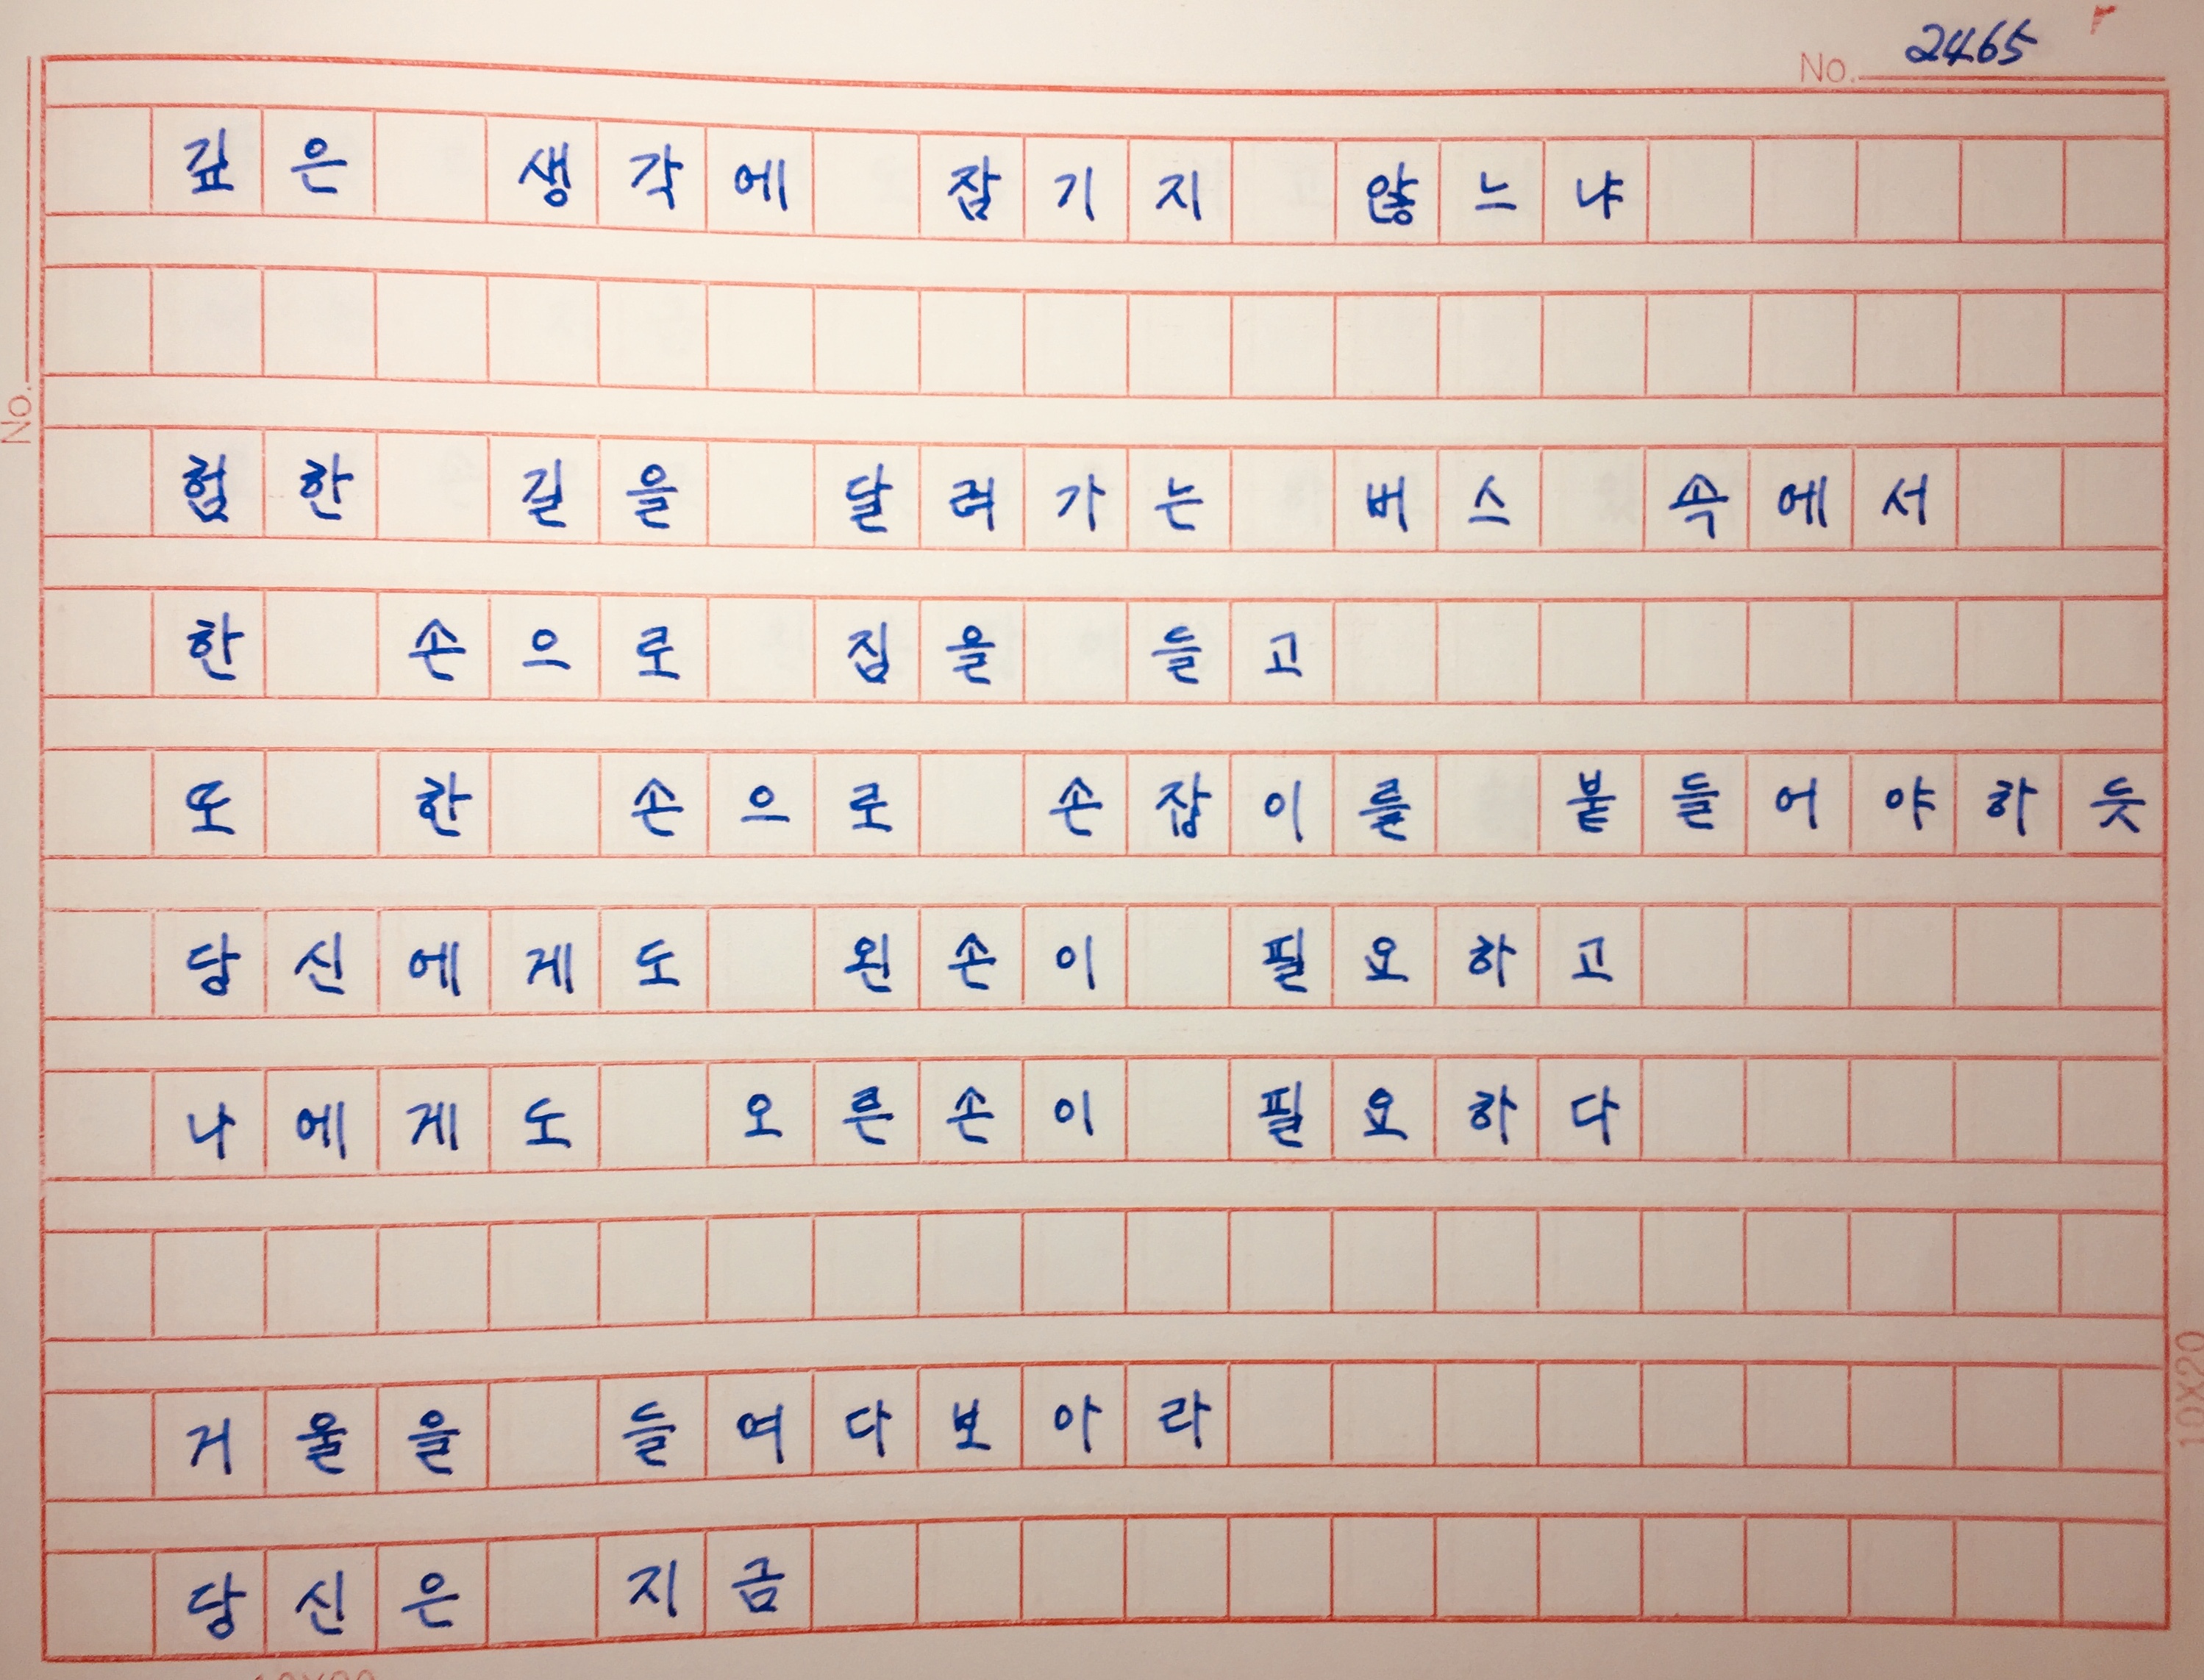 No. 2465
깊은 생각에 잠기지 않느냐
험한 길을 달려가는 버스 속에서
한 손으로 짐을 들고
또 한 손으로 손잡이를 붙들어야하듯
당신에게도 왼손이 필요하고
나에게도 오른손이 필요하다
거울을 들여다보아라
당신은 지금
No.
10X20